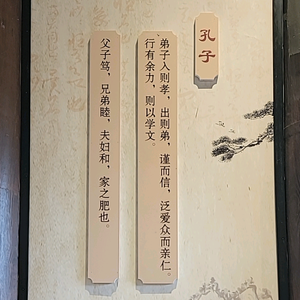 孔子
弟子入则孝，出则弟，谨而信，泛爱众而亲仁。
行有余力，则以学文。
父子笃，兄弟睦，夫妇和，家之肥也。